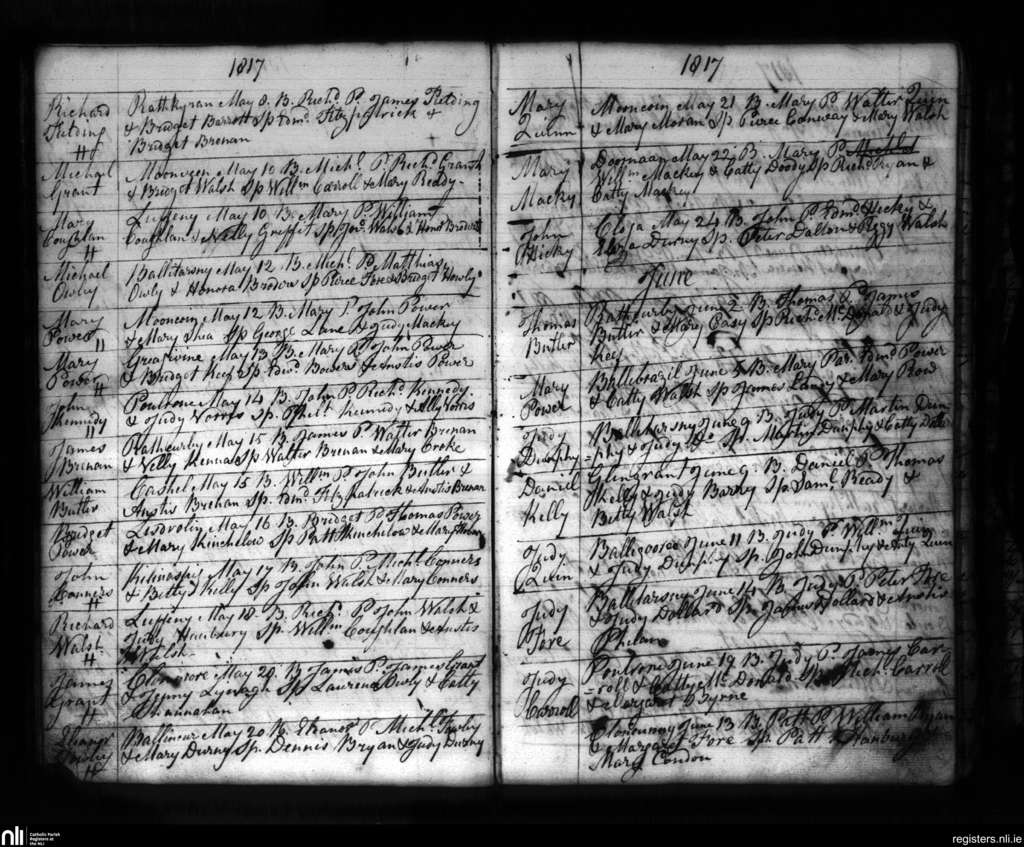 1817
Richard Rathkyran May 8. B. Richd. P. James Felding
Felding & Bridget Barrott Sp Edmd. Fitzpatrick &
Bridget Brenan
Michael Mooneen May 10 B. Michl. P. Richd. Grant
Grant & Bridget Walsh Sp Willm Carroll & Mary Ready
Mary Luffeny May 10 B. Mary P. William
Coughlan Coughlan & Nelly Sp Walsh & Honor
Michael Ballitarsny May 12. B. Michl. P. Matthias
Owly Owly & Honora Brodera Sp Pierce Fore & Bridget Howly
Mary Mooncoin May 12 B. Mary P. John Power
Power & Mary Shea Sp George Lane & Judy Mackey
Mary May 13 B. Mary P. John Power
Power & Bridget Keef Sp Edwd. Bowers & Anstis Power
John Poulrone May 14 B. John P. Richd. Kennedy
Kennedy & Judy Norris Sp. Kennedy & Norris
James Rathcurby May 15 B. James P. Walter Brenan
Brenan & Nelly Kenna Sp Walter Brenan & Mary Croke
William Cashel May 15 B. Willm P. John Butler &
Butler Anstis Brenan Sp. Edmd. Fitzpatrick & Anstis Brenan
Bridget Lisdrolin May 16 B. Bridget P. Thomas Power
Power & Mary Kinchelow Sp Patt Kinchelow & Mary
John May 17 B. John P. Michl. Conners
Conners & Betty Kelly Sp John Walsh & Mary Conners
Richard Luffeny May 18. B. Richd. P. John Walsh &
Walsh Judy Hanbury Sp. Willm Coughlan & Anstis
Walsh
James Clonmore May 20. B. James P. James Grant
Grant & Jenny Sp Laurence Owly & Catty
Shannahan
Ballincur May 20 B. P. Michl.
& Mary Durny Sp. Dennis Bryan & Judy Durny
1817
Mary Mooncoin May 21 B. Mary P. Walter Quin
Quinn & Mary Moran Sp Pierce Conway & Mary Walsh
Mary Doornaan May 22 B. Mary P.
Macky Willm Mackey & Catty Doody Sp Richd. Ryan &
Catty Mackey
John Cloga May 24 B. John P. Edmd Hickey &
Hicky Durny Sp. Peter Dalton & Peggy Walsh
June
Thomas Rathcurby June 2 B. Thomas P. James
Butler Butler & Mary Sp Richd Mc Donald & Judy
Key
Mary Ballebrazil June B. Mary Par. Edmd Power
Power & Catty Walsh Sp James & Mary Row
Judy Ballitarsny June 9 B. Judy P. Martin Dun
Dunphy =phy & Judy Do Sp. Martin Dunphy & Catty
Daniel Glengrant June 9. B. Daniel P. Thomas
Kelly Kelly & Judy Barry Sp Saml. Ready &
Betty Walsh
Judy June 11 B. Judy P. Willm Quin
Quin & Judy Dunphy Sp. John Dunphy & Quin
Judy Ballitarsny June 14 B. Judy P. Peter Fore
Fore & Judy Dollard Sp. James Dollard & Anstis
Phelan
Judy Poulrone June 19 B. Judy P. James Car
Carroll =roll & Catty Mc Donald Sp Michl. Carroll
& Margaret Byrne
June 13 B. Patt P. William
& Margaret Fore Sp. Patt Hanbury
Mary Condon
nli
Catholic Parish
Registers at
the NLI
registers.nli.ie